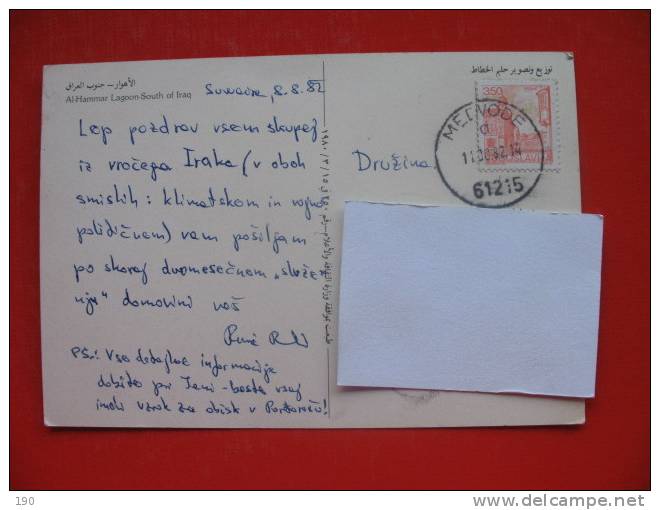 الأهوار – جنوب العراق
Al-Hammar Lagoon-South of Iraq
Suwaira, 8.8.82
Lep pozdrav vsem skupej
iz vročega Iraka (v obeh
smislih: klimatskem in vojno
političnem) vam pošiljam
po skoraj dvomesečnem „služe-
nju" domovini vaš
René
PS.: Vse detajlne informacije
dobite pri Jani - boste vsaj
imeli vzrok za obisk v Portorožu!
توزيع وتصوير حلمي الخطاط
350
MEDVODE
a
61215
Družina
190
www.delcampe.net